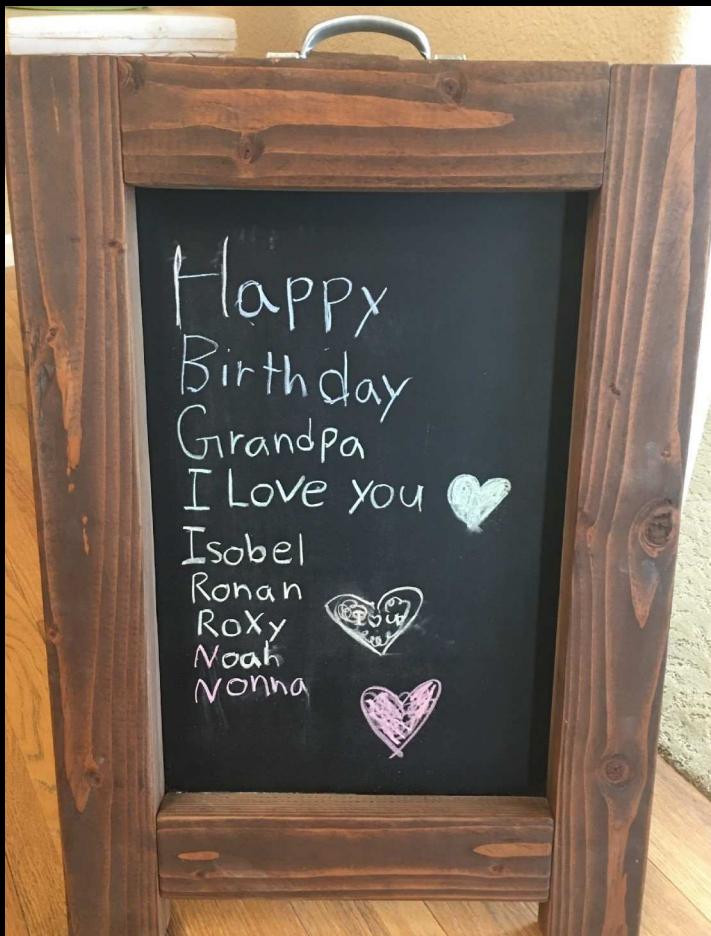 Happy
Birthday
Grandpa
I Love you
Isobel
Ronan
Roxy
Noah
Nonna